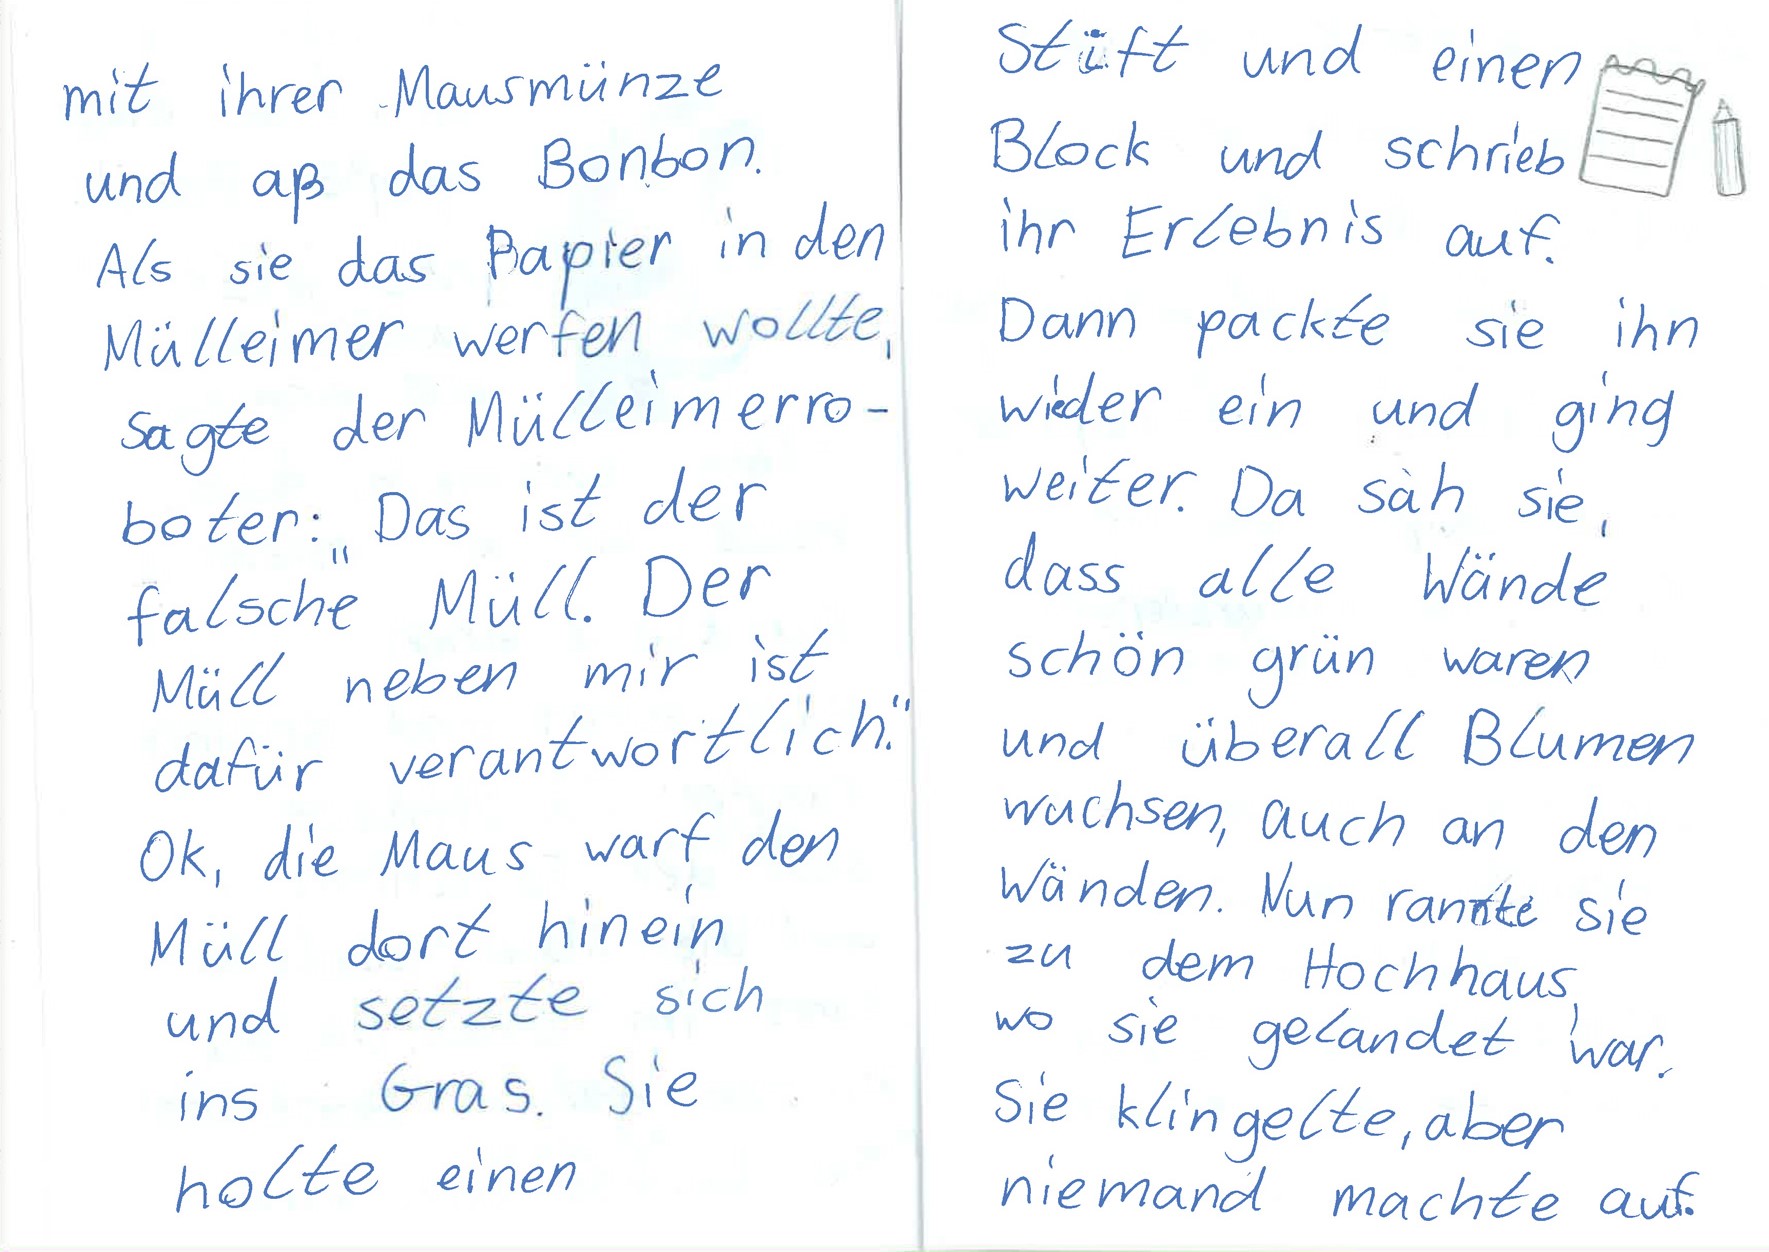 mit ihrer Mausmünze
und aß das Bonbon.
Als sie das Papier in den
Mülleimer werfen wollte,
sagte der Mülleimerro-
boter: „Das ist der
falsche Müll. Der
Müll neben mir ist
dafür verantwortlich.“
Ok, die Maus warf den
Müll dort hinein
und setzte sich
ins Gras. Sie
holte einen
Stift und einen
Block und schrieb
ihr Erlebnis auf.
Dann packte sie ihn
wieder ein und ging
weiter. Da sah sie,
dass alle Wände
schön grün waren
und überall Blumen
wuchsen, auch an den
Wänden. Nun rannte sie
zu dem Hochhaus,
wo sie gelandet war.
Sie klingelte, aber
niemand machte auf.